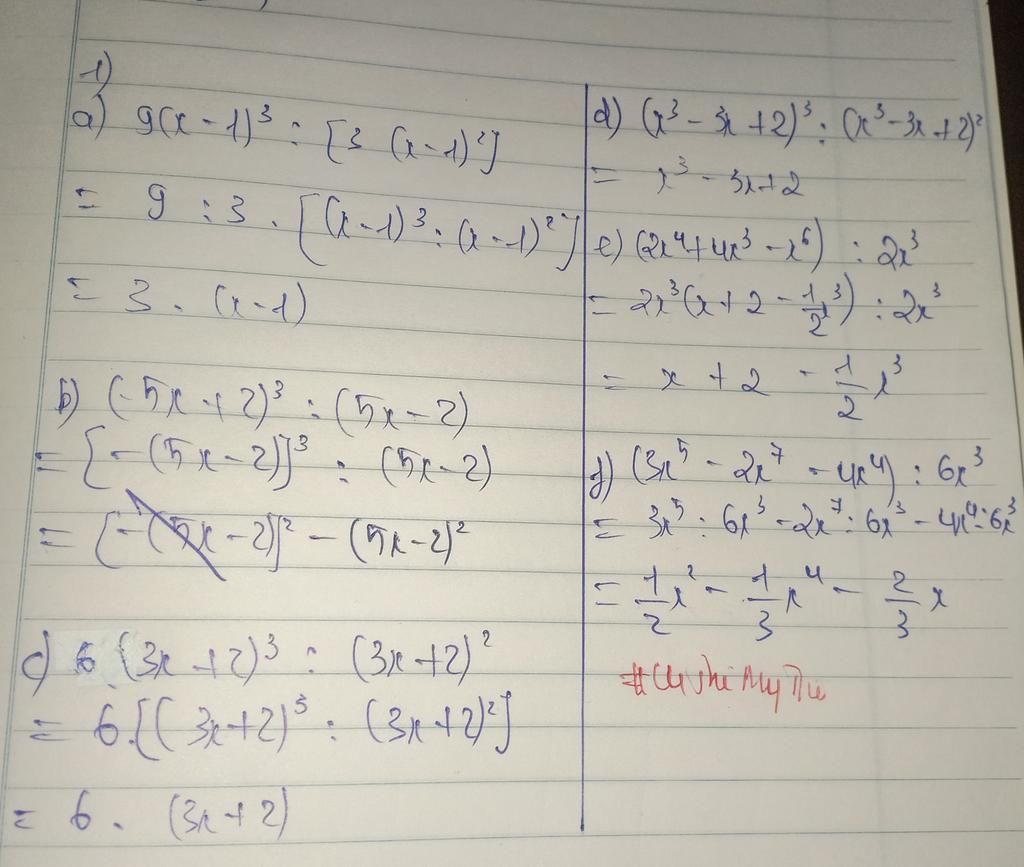 1)
a) 9(x-1)³ : [3 (x-1)²]
= 9 : 3 . [(x-1)³ : (x-1)²]
= 3 . (x-1)
b) (-5x+2)³ : (5x-2)
= [-(5x-2)]³ : (5x-2)
= [-(5x-2)]² - (5x-2)²
c) 6.(3x+2)³ : (3x+2)²
= 6.[(3x+2)³ : (3x+2)²]
= 6 . (3x+2)
d) (x³-3x+2)³ : (x³-3x+2)²
= x³-3x+2
e) (2x⁴+4x³-x⁶) : 2x³
= 2x³(x+2-1/2x³) : 2x³
= x+2-1/2x³
f) (3x⁵-2x⁷-4x⁴) : 6x³
= 3x⁵:6x³-2x⁷:6x³-4x⁴:6x³
= 1/2x²-1/3x⁴-2/3x